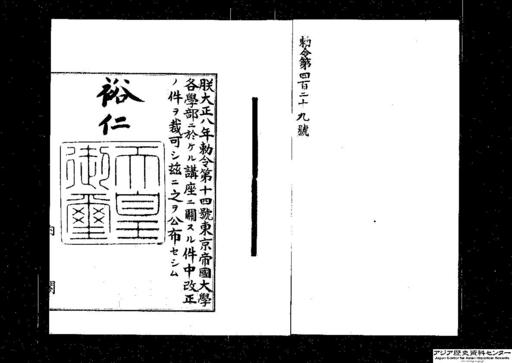 勅令第四百二十九號
朕大正八年勅令第十四號東京帝國大學
各學部ニ於ケル講座ニ關スル件中改正
ノ件ヲ裁可シ茲ニ之ヲ公布セシム
裕仁
天皇
御璽
内閣
アジア歴史資料センター
Japan Center for Asian Historical Records